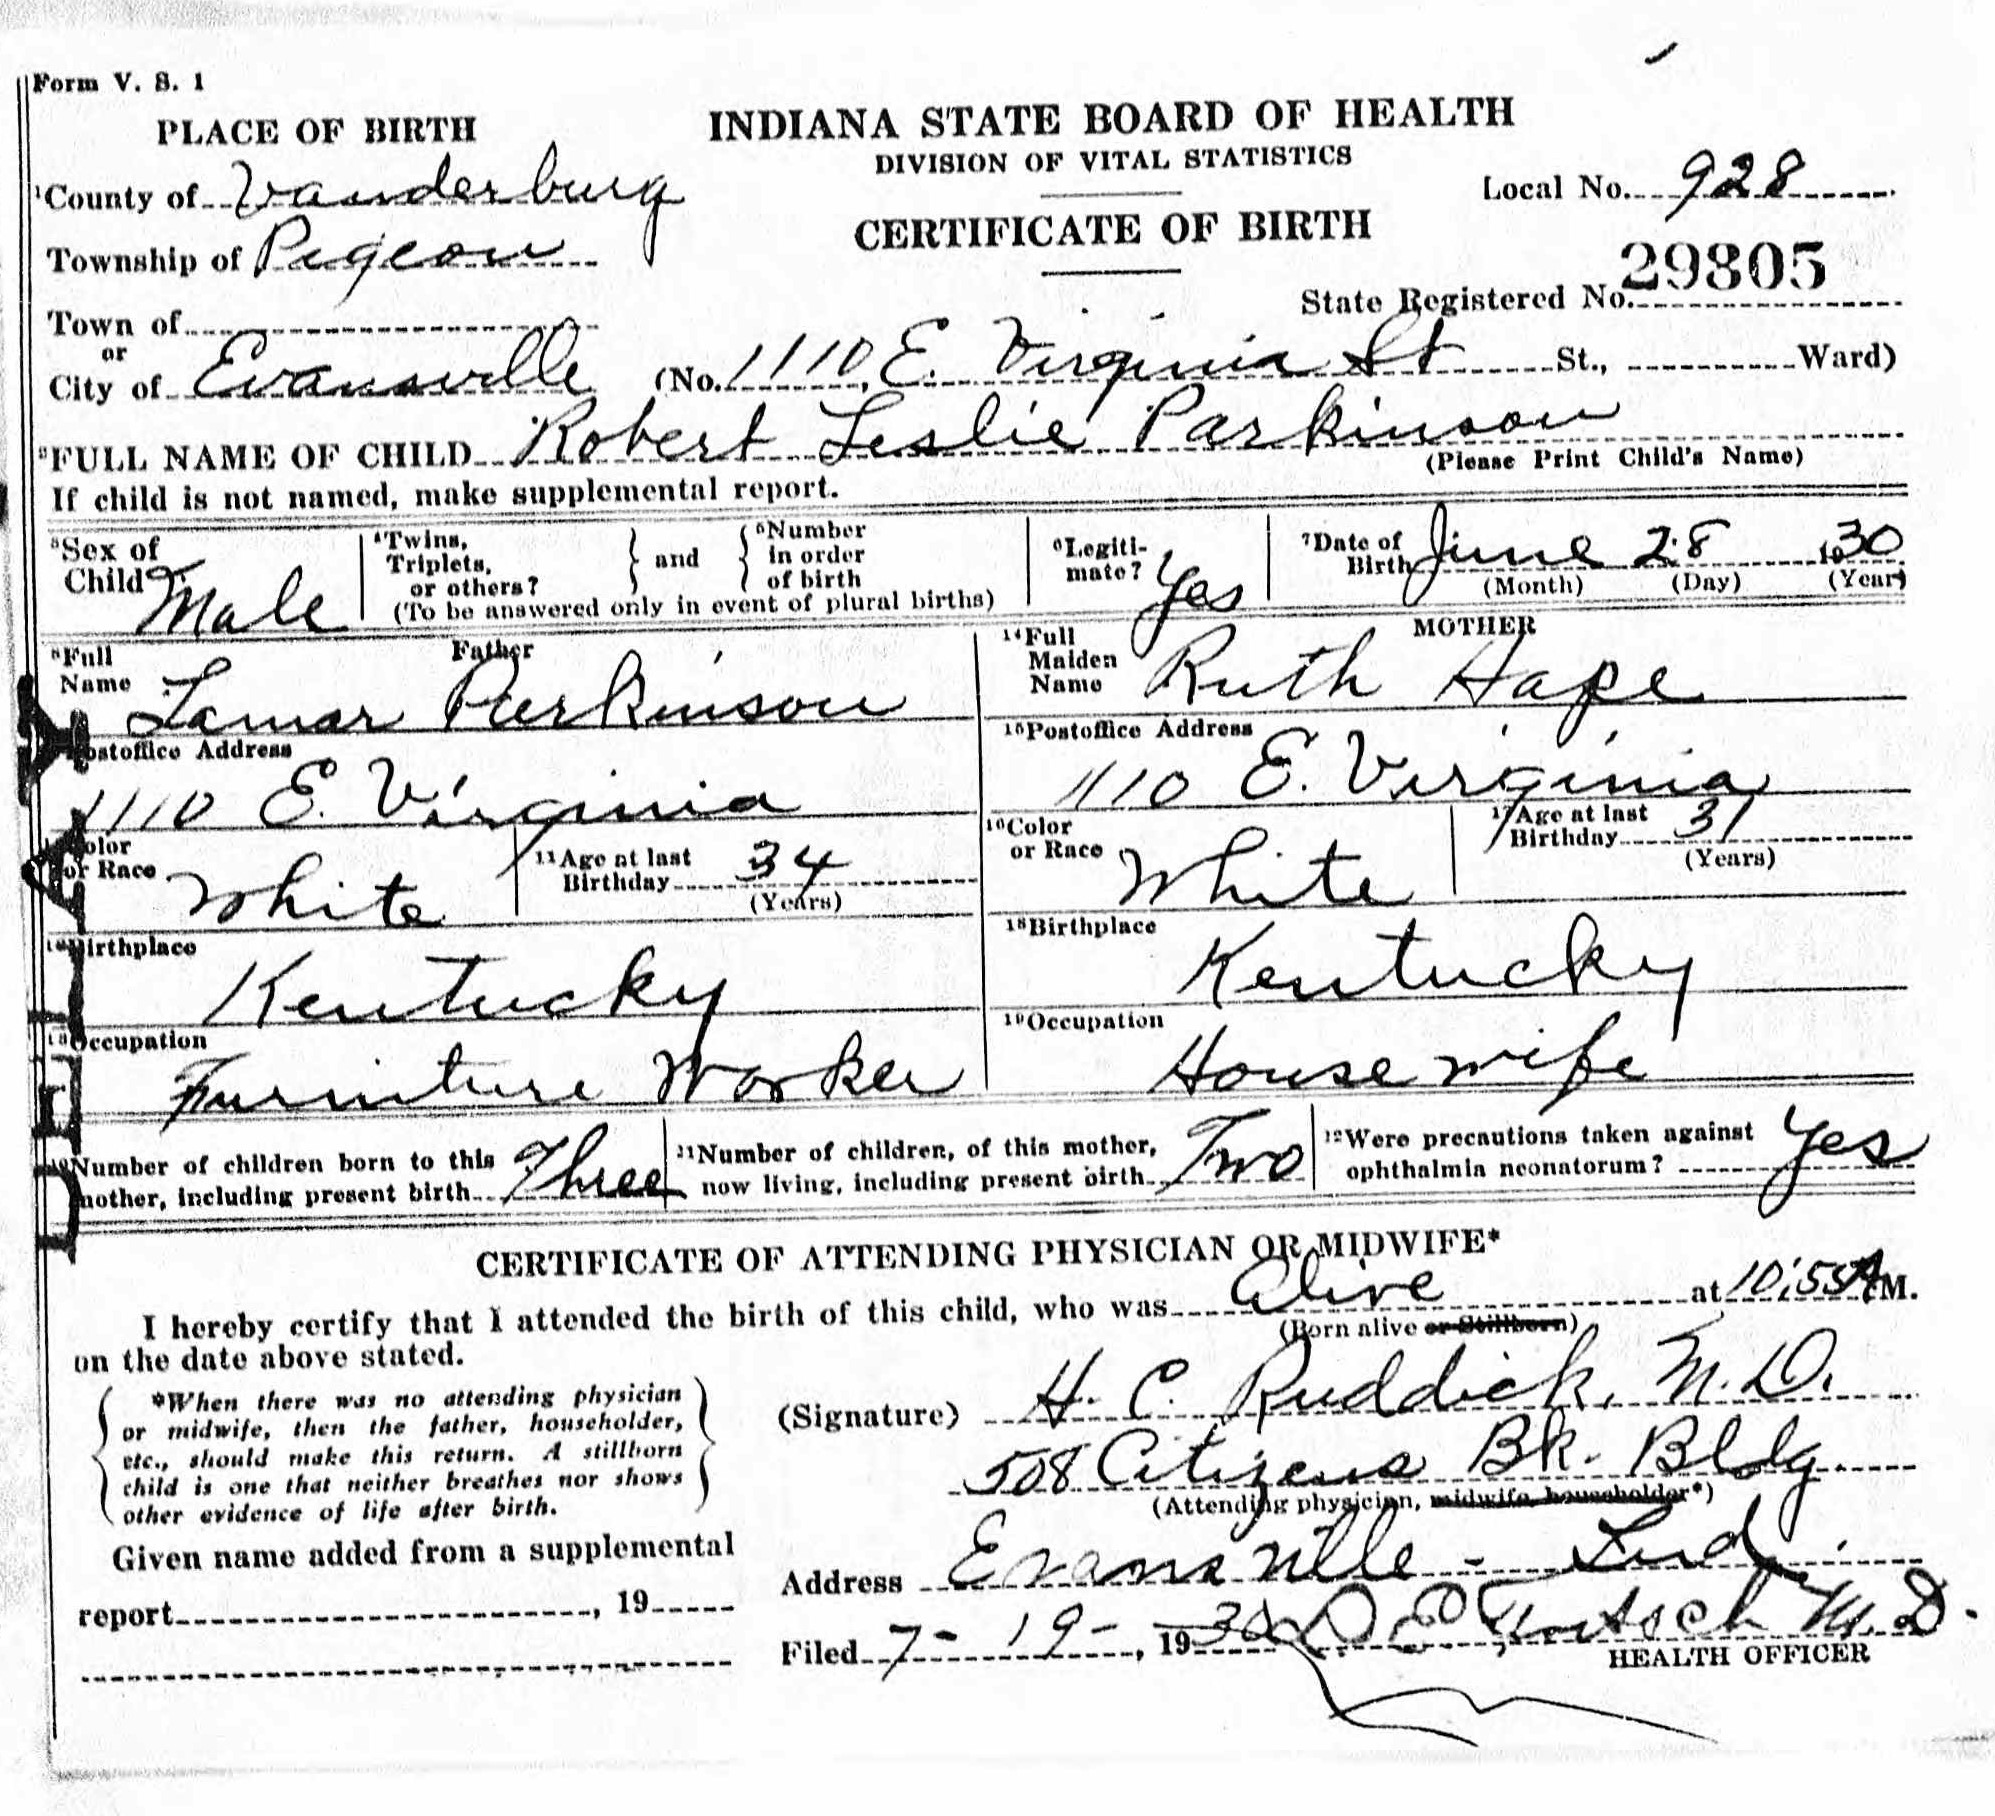 Form V. S. 1
PLACE OF BIRTH
INDIANA STATE BOARD OF HEALTH
DIVISION OF VITAL STATISTICS
1County of Vanderburg
Local No. 928
CERTIFICATE OF BIRTH
Township of Pigeon
29305
State Registered No.
Town of
or
City of Evansville (No. 1110, E. Virginia St St., Ward)
2FULL NAME OF CHILD Robert Leslie Parkinson
(Please Print Child's Name)
If child is not named, make supplemental report.
3Sex of Child Male
4Twins, Triplets, or others? } and { 5Number in order of birth
(To be answered only in event of plural births)
6Legiti-mate? Yes
7Date of Birth June 28 1930
(Month) (Day) (Year)
Father
8Full Name Lamar Parkinson
MOTHER
14Full Maiden Name Ruth Hape
Postoffice Address
1110 E. Virginia
15Postoffice Address
1110 E. Virginia
Color or Race White
11Age at last Birthday 34
(Years)
16Color or Race White
17Age at last Birthday 31
(Years)
Birthplace
Kentucky
18Birthplace
Kentucky
Occupation
Furniture Worker
19Occupation
Housewife
Number of children born to this mother, including present birth Three
21Number of children, of this mother, now living, including present birth Two
Were precautions taken against ophthalmia neonatorum? Yes
CERTIFICATE OF ATTENDING PHYSICIAN OR MIDWIFE*
I hereby certify that I attended the birth of this child, who was Alive at 10:55 A M.
(Born alive or Stillborn)
on the date above stated.
*When there was no attending physician
or midwife, then the father, householder,
etc., should make this return. A stillborn
child is one that neither breathes nor shows
other evidence of life after birth.
(Signature) H. C. Ruddick, M.D.
508 Citizens Bk. Bldg
(Attending physician, midwife, householder*)
Given name added from a supplemental
report , 19
Address Evansville - Ind.
Filed 7-19-, 1930 M.D.
HEALTH OFFICER